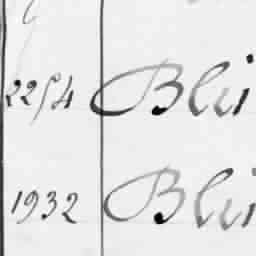 2254 Bli
1932 Bli